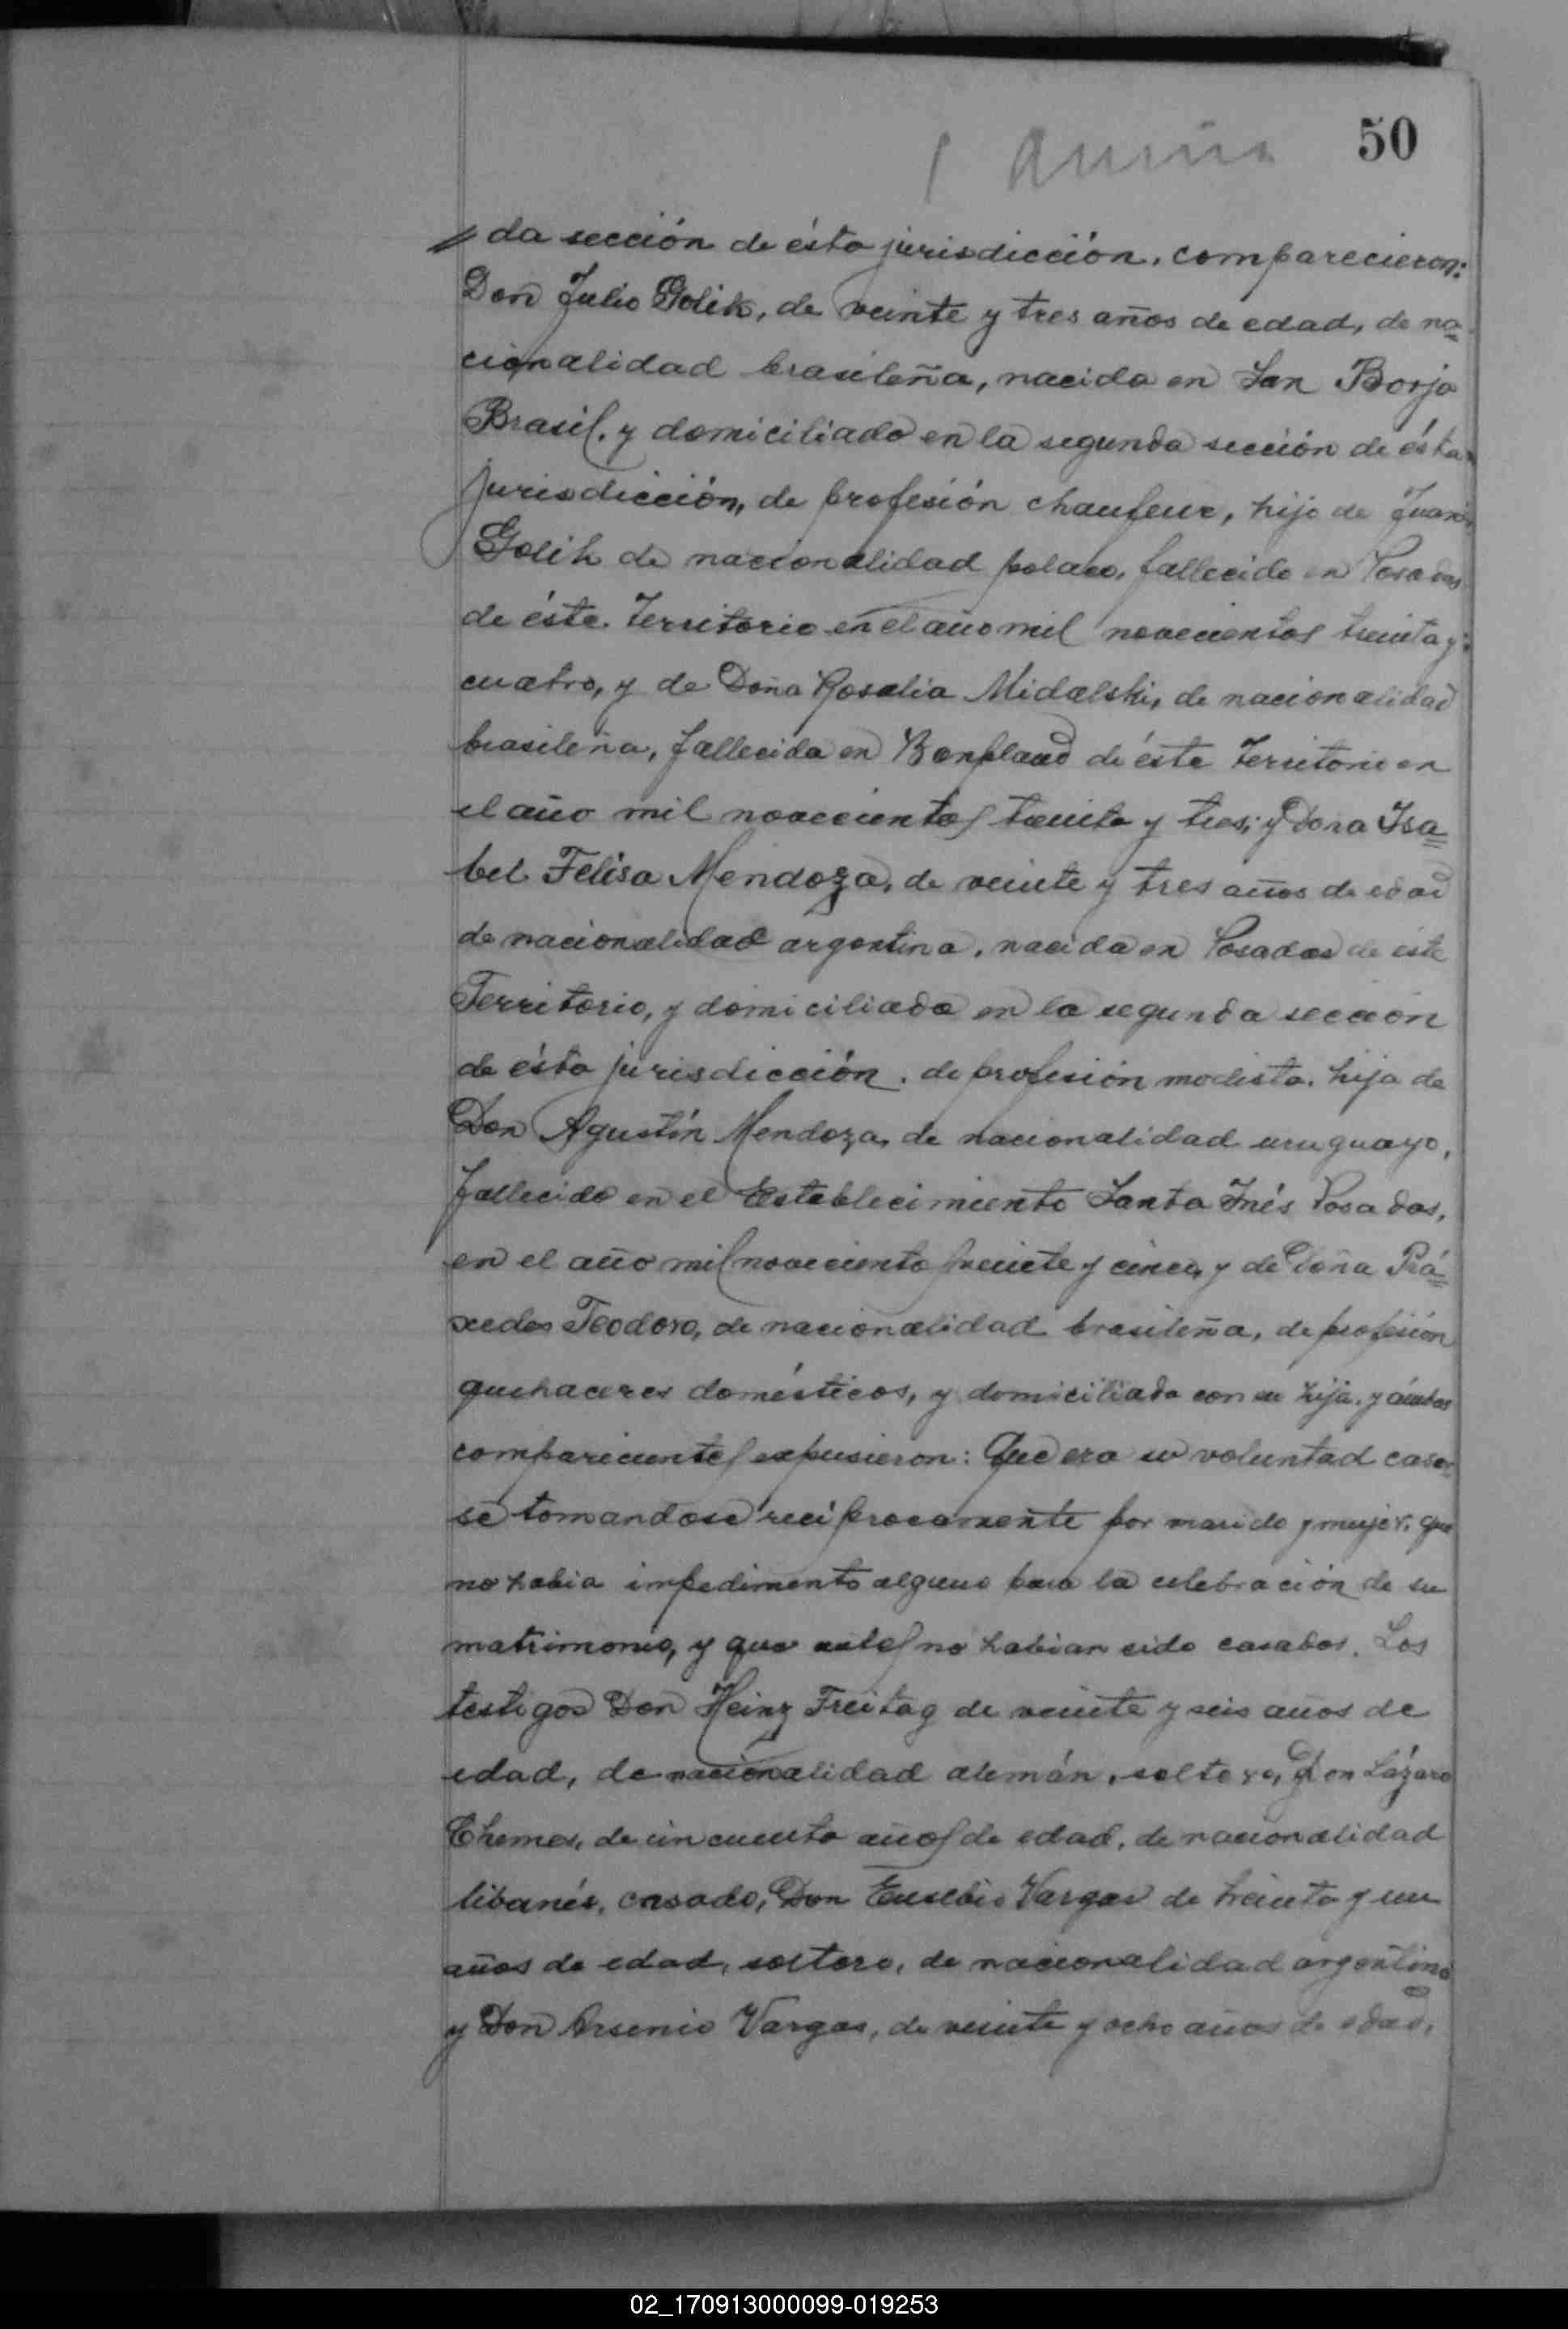 50
// da sección de ésta jurisdicción, comparecieron:
Don Julio Golik, de veinte y tres años de edad, de na=
cionalidad brasileña, nacido en San Borja
Brasil, y domiciliado en la segunda sección de ésta
jurisdicción, de profesión chaufeur, hijo de Juan
Golik de nacionalidad polaco, fallecido en Posadas
de éste Territorio en el año mil novecientos treinta y
cuatro, y de Doña Rosalia Midalski, de nacionalidad
brasileña, fallecida en Bonpland de éste Territorio en
el año mil novecientos treinta y tres; y Doña Isa=
bel Felisa Mendoza, de veinte y tres años de edad
de nacionalidad argentina, nacida en Posadas de éste
Territorio, y domiciliada en la segunda sección
de ésta jurisdicción, de profesión modista, hija de
Don Agustín Mendoza, de nacionalidad uruguayo,
fallecido en el Establecimiento Santa Inés Posadas,
en el año mil novecientos veinte y cinco, y de Doña Prá=
xedes Teodoro, de nacionalidad brasileña, de profesión
quehaceres domésticos, y domiciliada con su hija, y ámbos
comparecientes expusieron: Que era su voluntad casar
se tomandose recíprocamente por marido y mujer, que
no habia impedimento alguno para la celebración de su
matrimonio, y que antes no habian sido casados. Los
testigos Don Heinz Freitag de veinte y seis años de
edad, de nacionalidad alemán, soltero, Don Lázaro
Chemes, de cincuenta años de edad, de nacionalidad
libanés, casado, Don Eusebio Vargas de treinta y un
años de edad, soltero, de nacionalidad argentino
y Don Arsenio Vargas, de veinte y ocho años de edad,
02_170913000099-019253